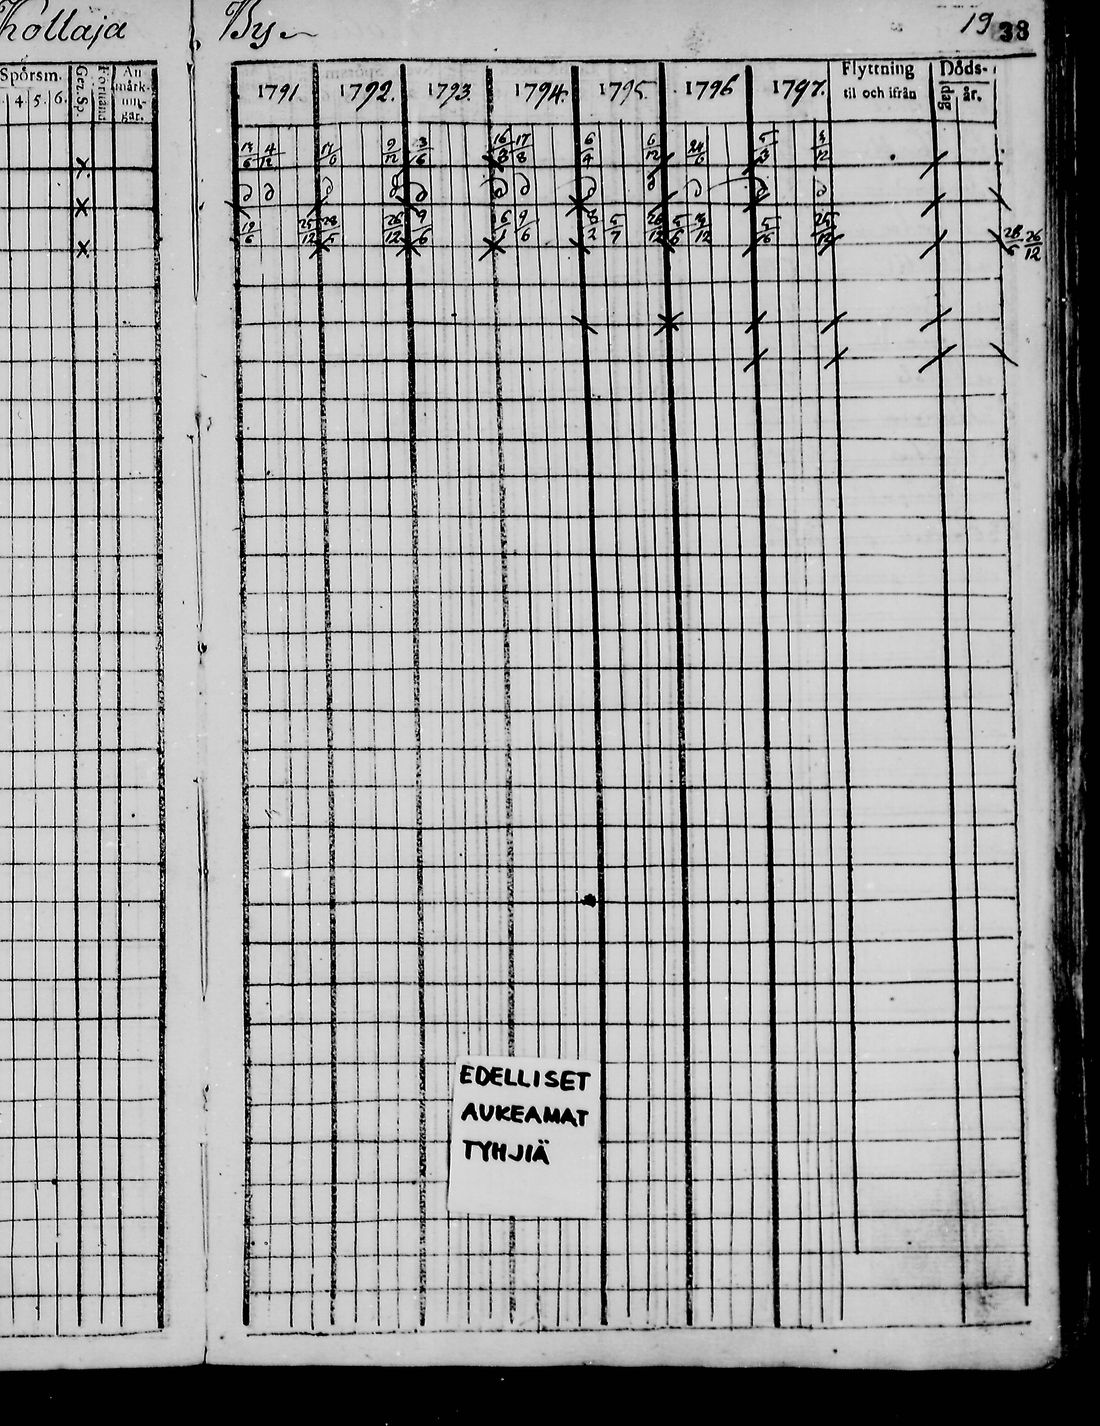 Kollaja By 19 38
Spörsm. 4. 5. 6. Ger. Sp. An märk- nin- gar.
1791 1792. 1793. 1794. 1795. 1796 1797. Flyttning til och ifrån Döds- dag år.
13/6 4/12 17/6 9/12 3/6 16/3 17/8 6/4 6/12 24/6 5/3 4/12
19/6 25/12 28/5 26/12 9/6 6/1 9/6 8/2 5/7 26/12 5/6 5/6 25/12 28/6 26/12
EDELLISET
AUKEAMAT
TYHJIÄ